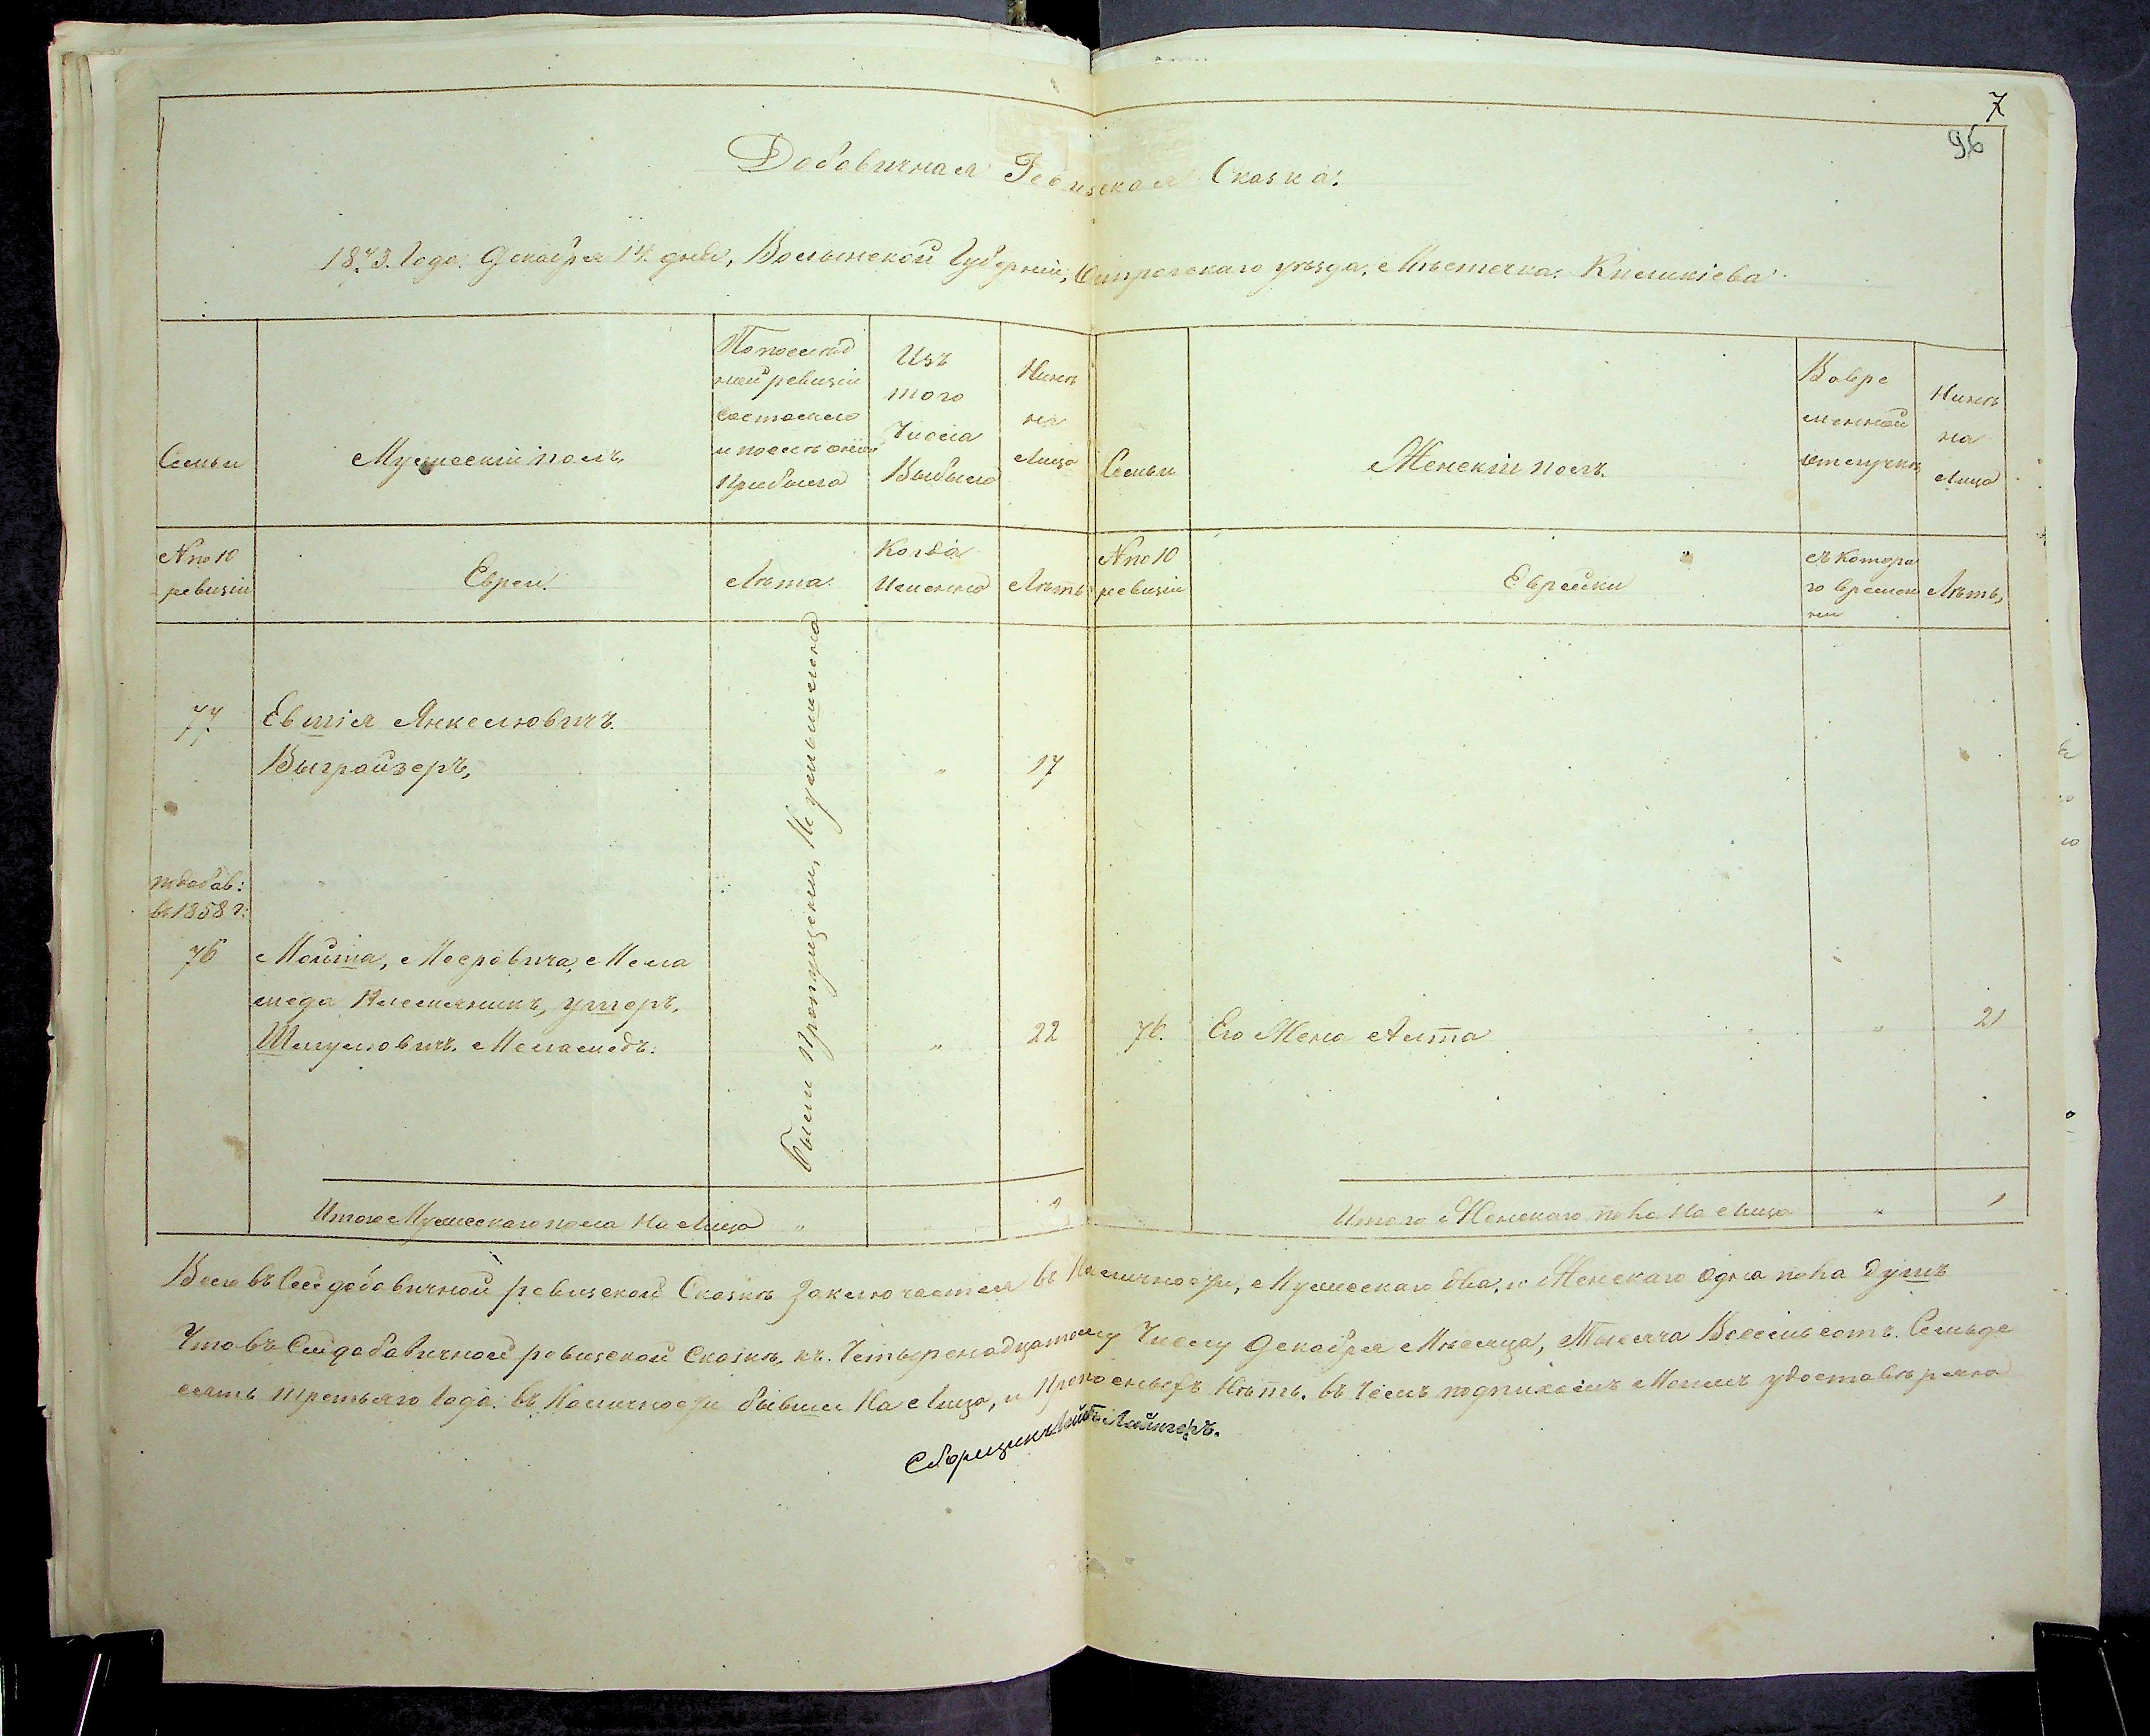 7
96
Добавичная Ревизская Сказка:
1873. Года. Декабря 14. дня, Волынской Губерніи, Острогскаго уѣзда, Мѣстечка Киликіева
Семьи
Мужескій полъ
По послѣд
ней ревизіи
состояло
и послѣ оной
прибыло
Изъ
того
Числа
Выбыло
Нынѣ
на
Лицо
Семьи
Женскій полъ.
Вовре
менной
отлучкѣ
Нынѣ
на
Лицо
№ по 10
ревизіи
Евреи.
Лѣта.
Когда
Именно
Лѣтъ
№ по 10
ревизіи
Еврейки
съ Котора
го време
ни
Лѣтъ,
были пропущены, Неумышлено
77
Евшія Янкелювичъ
Выграйзеръ,
"
17
по добав:
въ 1858 г:
76
Мошка, Меэровича, Мела
меда Племянникъ, умеръ.
Шмулювичъ Меламедъ:
"
22
76.
Его Жена Алта
"
21
Итого Мужескаго пола На Лицо
"
"
2
Итого Женскаго пола На Лицо
"
1
Всего въ Сей добавичной ревизской Сказкѣ заключается въ Наличности, Мужескаго два, и Женскаго одна пола душъ
Что въ Сей добавичной ревизской Сказкѣ, къ Четырнадцатому Числу Декабря Мѣсяца, Тысяча Восемьсотъ Семьде
сятъ третьяго Года въ Наличности бывши На Лицо, и Прописныхъ Нѣтъ. въ чемъ подписомъ Моимъ удостовѣряю
Сборщикъ Лейба